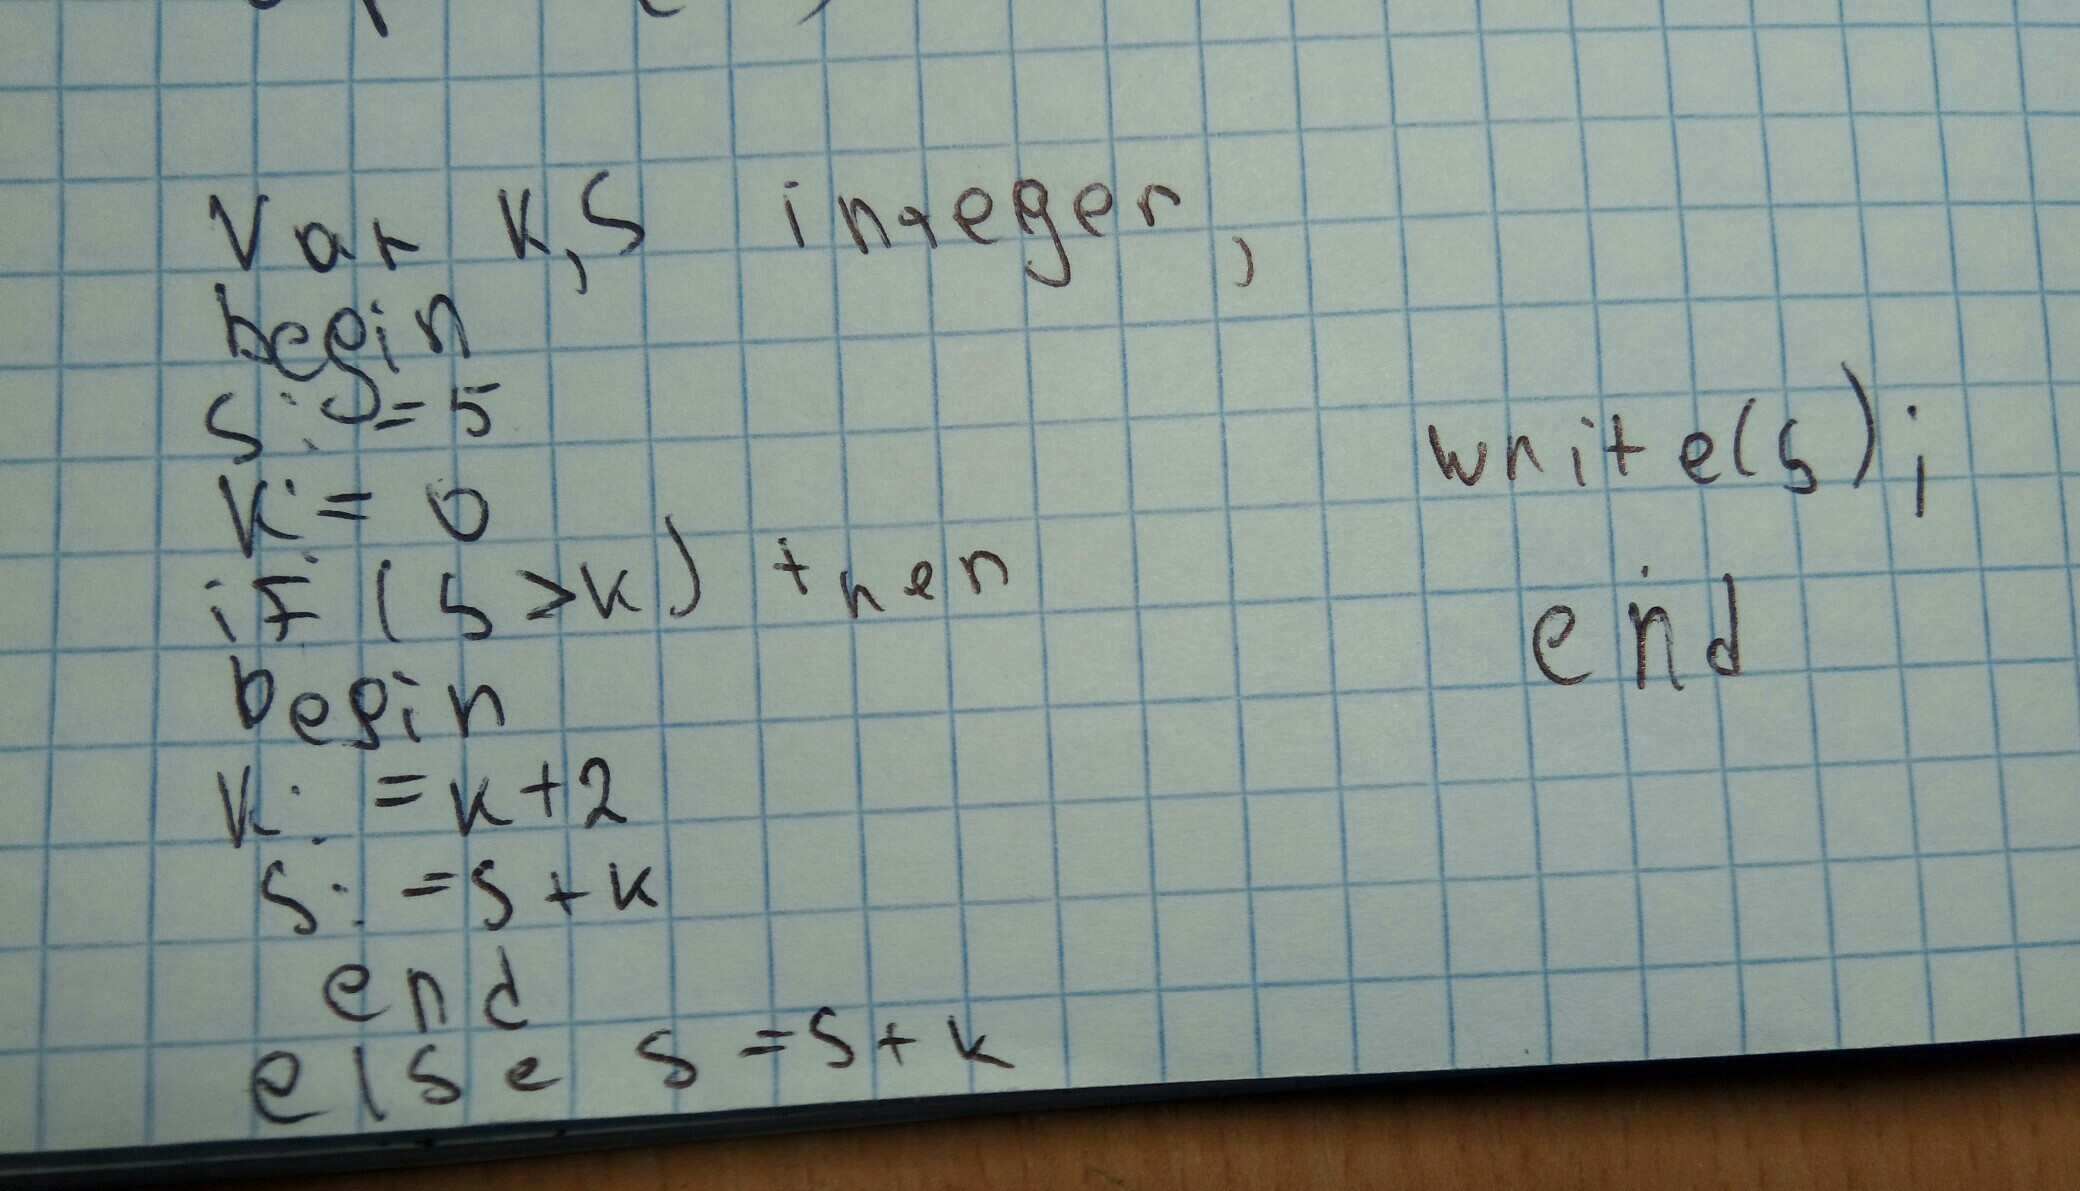 Var k,S integer,
begin
S:=5
k:= 0
if (S>k) then
begin
k:=k+2
S:=S+k
end
else S =S+k
write(S);
end